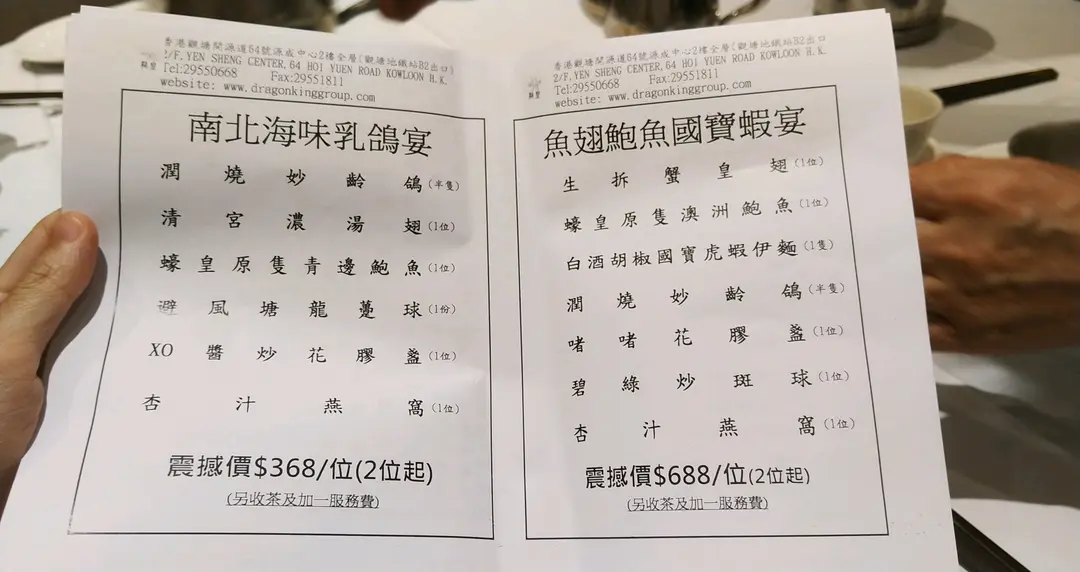 香港觀塘開源道64號源成中心2樓全層(觀塘地鐵站B2出口)
2/F.YEN SHENG CENTER,64 HOI YUEN ROAD KOWLOON H.K.
Tel:29550668 Fax:29551811
website: www.dragonkinggroup.com
南北海味乳鴿宴
潤燒妙齡鴿(半隻)
清宮濃湯翅(1位)
蠔皇原隻青邊鮑魚(1位)
避風塘龍躉球(1份)
XO醬炒花膠盞(1位)
杏汁燕窩(1位)
震撼價$368/位(2位起)
(另收茶及加一服務費)
香港觀塘開源道64號源成中心2樓全層(觀塘地鐵站B2出口
2/F.YEN SHENG CENTER,64 HOI YUEN ROAD KOWLOON H.K.
Tel:29550668 Fax:29551811
website: www.dragonkinggroup.com
魚翅鮑魚國寶蝦宴
生拆蟹皇翅(1位)
蠔皇原隻澳洲鮑魚(1位)
白酒胡椒國寶虎蝦伊麵(1隻)
潤燒妙齡鴿(半隻)
啫啫花膠盞(1位)
碧綠炒斑球(1位)
杏汁燕窩(1位)
震撼價$688/位(2位起)
(另收茶及加一服務費)